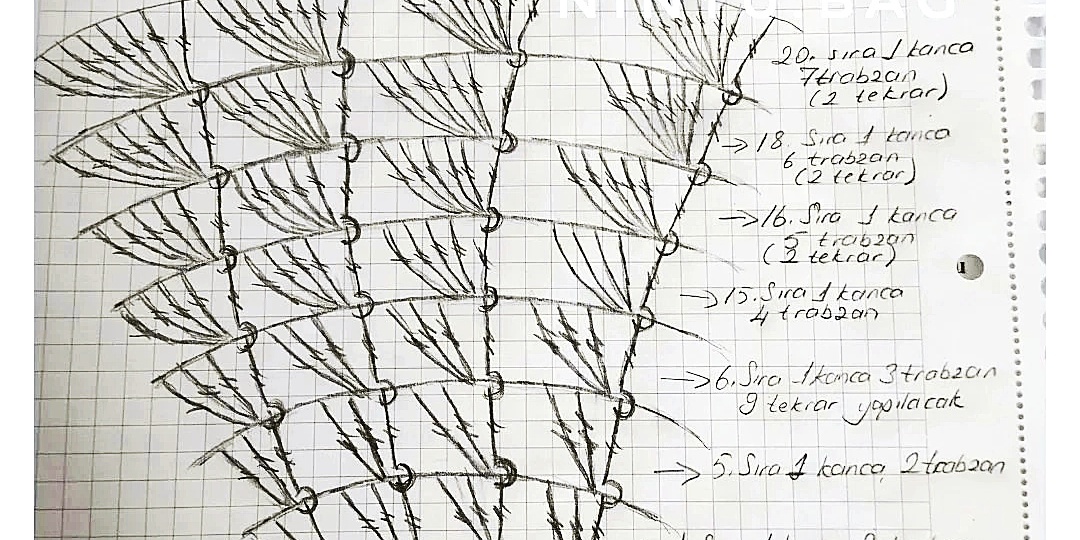 NINYO BAG
20. sıra 1 kanca
7 trabzan
(2 tekrar)
→ 18. Sıra 1 kanca
6 trabzan
(2 tekrar)
→ 16. Sıra 1 kanca
5 trabzan
(2 tekrar)
→ 15. Sıra 1 kanca
4 trabzan
→ 6. Sıra 1 kanca 3 trabzan
9 tekrar yapılacak
→ 5. Sıra 1 kanca, 2 trabzan